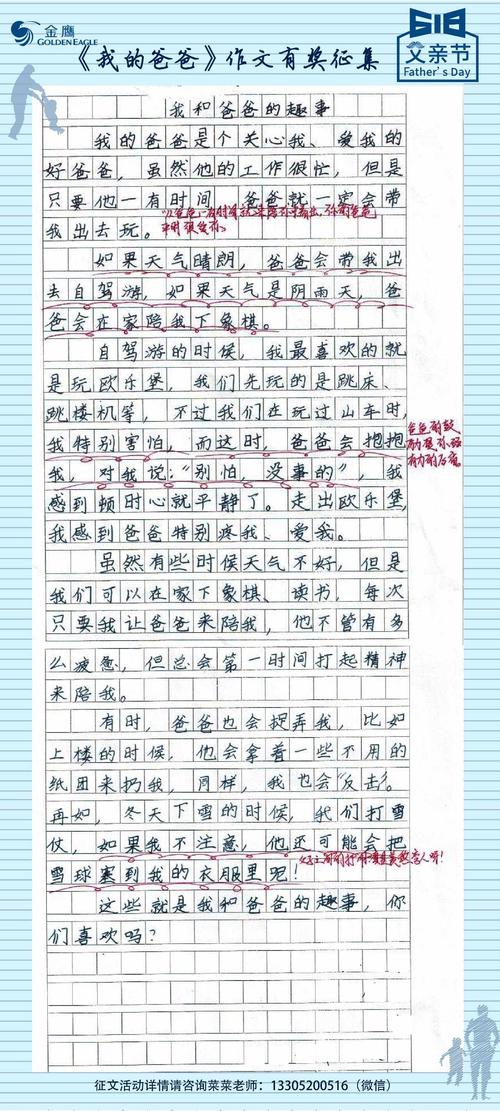 金鹰
GOLDEN EAGLE
《我的爸爸》作文有奖征集
618
父亲节
Father's Day
我和爸爸的趣事
我的爸爸是个关心我、爱我的
好爸爸，虽然他的工作很忙，但是
只要他一有时间，爸爸就一定会带
我出去玩。
如果天气晴朗，爸爸会带我出
去自驾游，如果天气是阴雨天，爸
爸会在家陪我下象棋。
自驾游的时候，我最喜欢的就
是玩欧乐堡，我们先玩的是跳床、
跳楼机等，不过我们在玩过山车时，
我特别害怕，而这时，爸爸会抱抱
我，对我说："别怕，没事的"，我
感到顿时心就平静了。走出欧乐堡，
我感到爸爸特别疼我、爱我。
虽然有些时候天气不好，但是
我们可以在家下象棋、读书，每次
只要我让爸爸来陪我，他不管有多
么疲惫，但总会第一时间打起精神
来陪我。
有时，爸爸也会捉弄我，比如
上楼的时候，他会拿着一些不用的
纸团来扔我，同样，我也会"反击"。
再如，冬天下雪的时候，我们打雪
仗，如果我不注意，他还可能会把
雪球塞到我的衣服里呢！
这些就是我和爸爸的趣事，你
们喜欢吗？
征文活动详情请咨询莱莱老师：13305200516（微信）